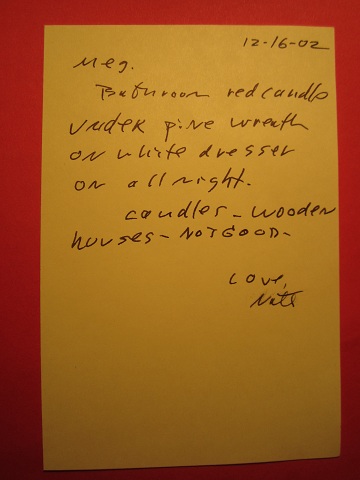 12-16-02
Meg.
Bathroom red candle
under pine wreath
on white dresser
on all night.
candles - wooden
houses - NOT GOOD -
Love,
Nate